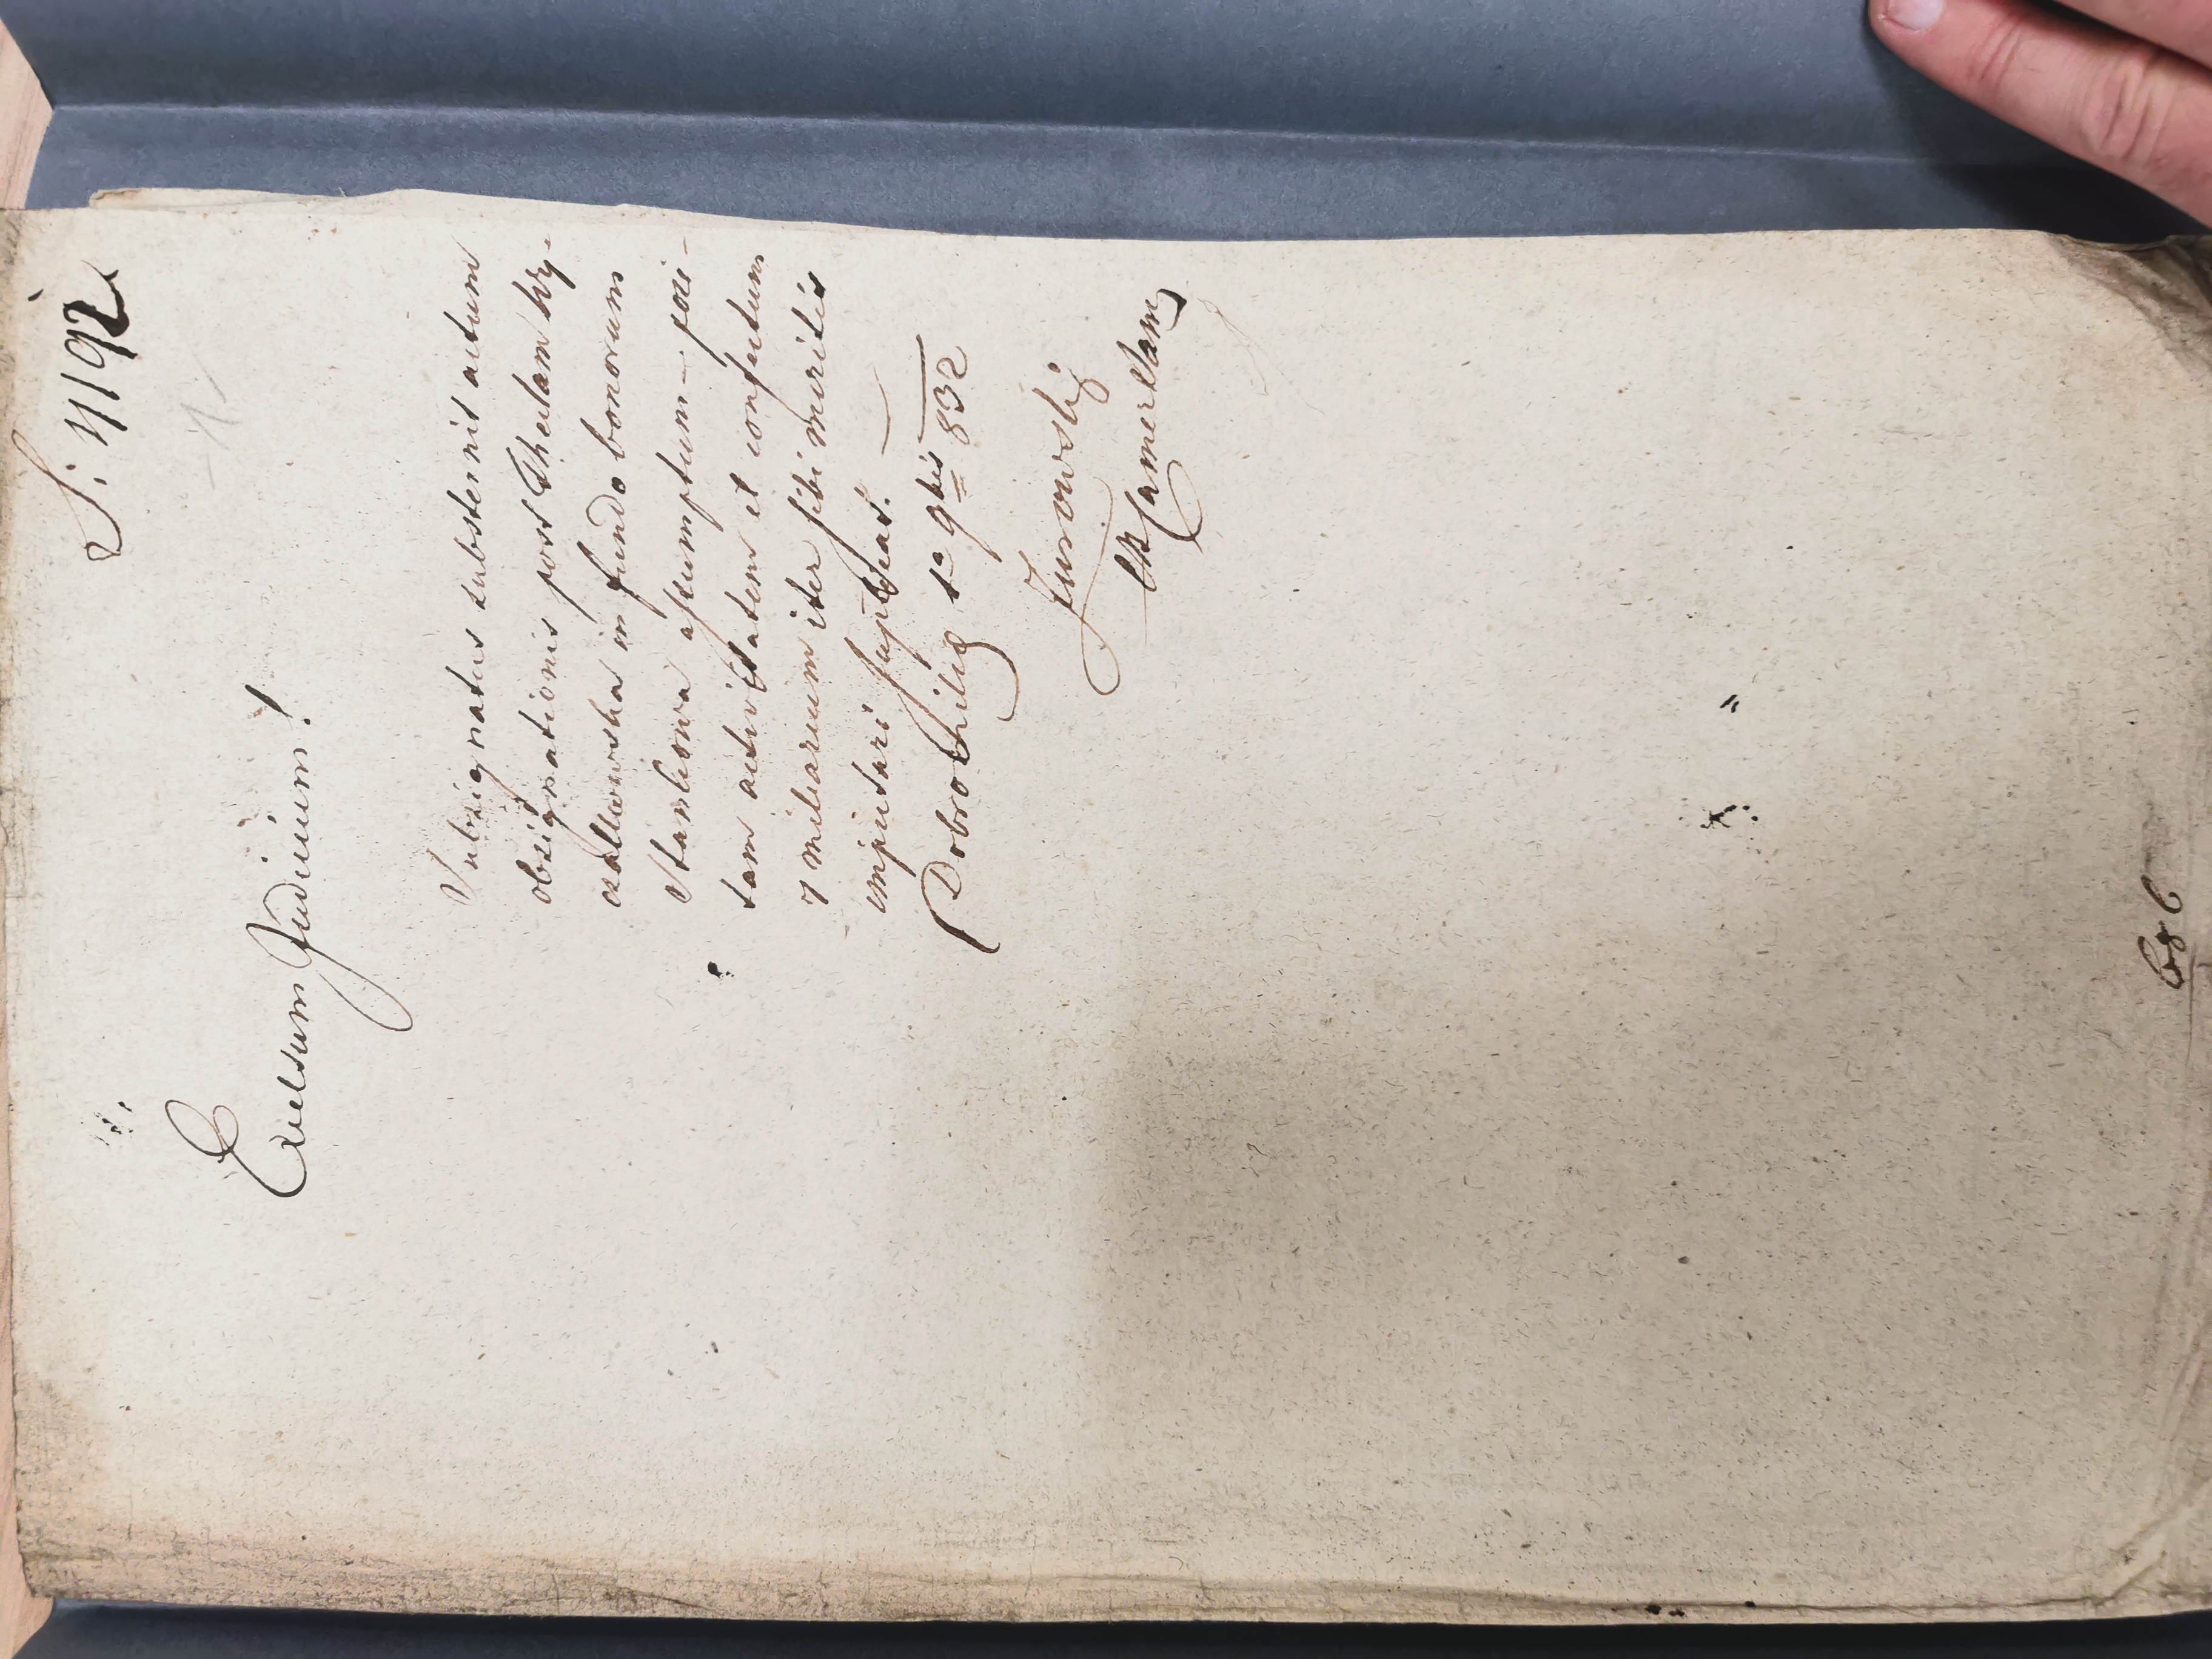 S: 4192
Excelsum Judicium!
Subsignatus substernit actum
obsignationis post Theclam Wy-
in fundo bonorum
Stankowa assumptum — pro-
tam activitatem et confectum
7 miliarium iter sibi meritis
imputari supplicat. —
Dobrochilig 1a 9bris 832
Zurowski
CR Camerlam
686